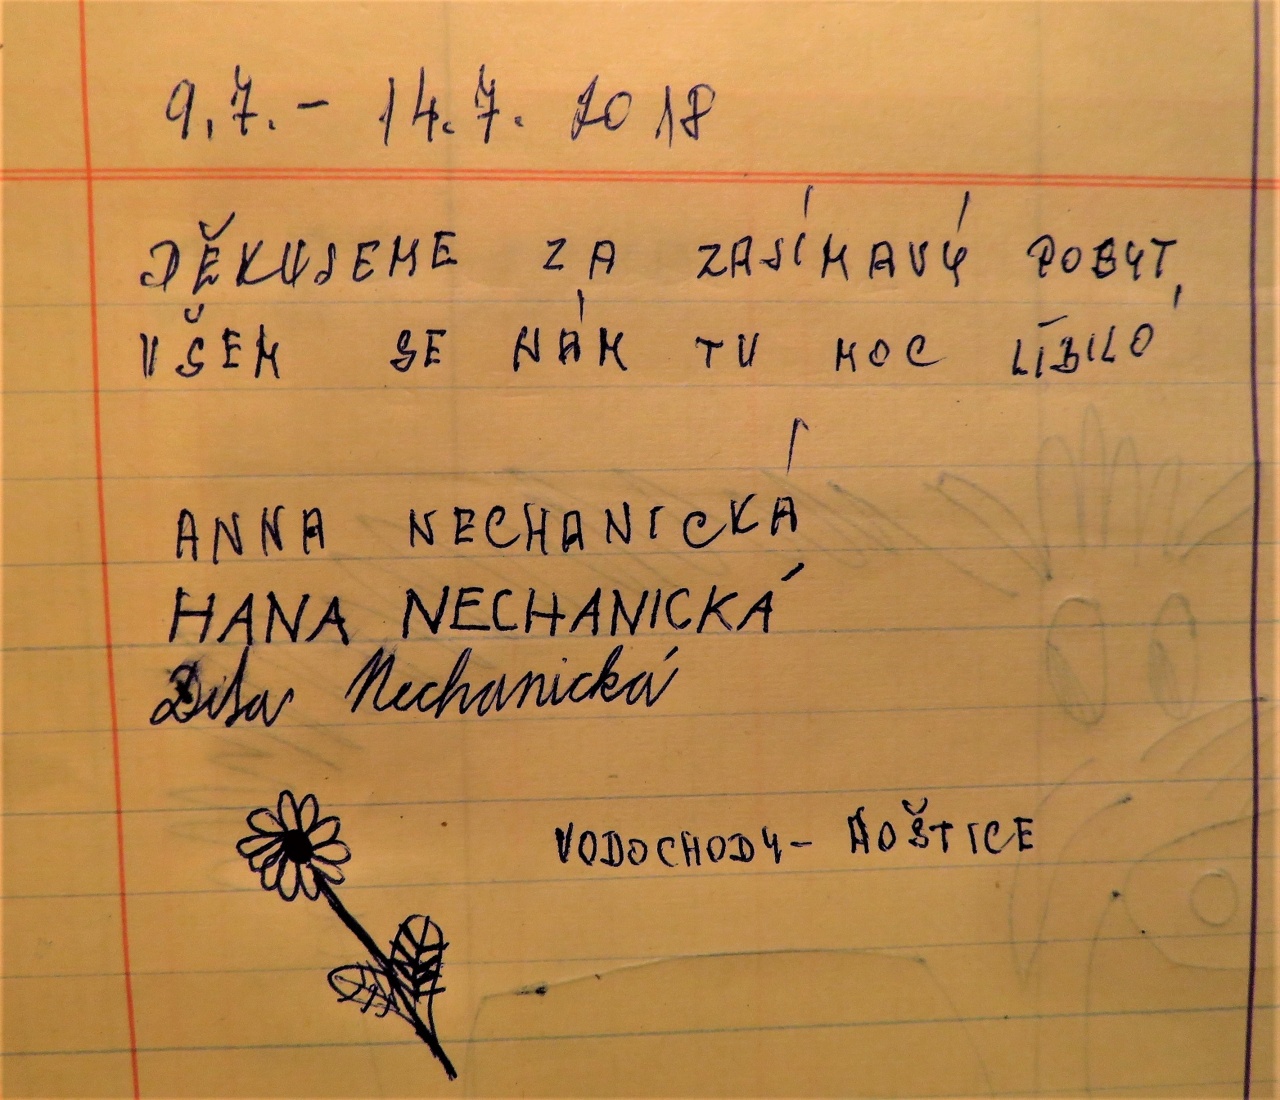 9.7. - 14.7. 2018
DĚKUJEME ZA ZAJÍMAVÝ POBYT,
VŠEM SE NÁM TU MOC LÍBILO
ANNA NECHANICKÁ
HANA NECHANICKÁ
Nechanická
VODOCHODY - HOŠTICE